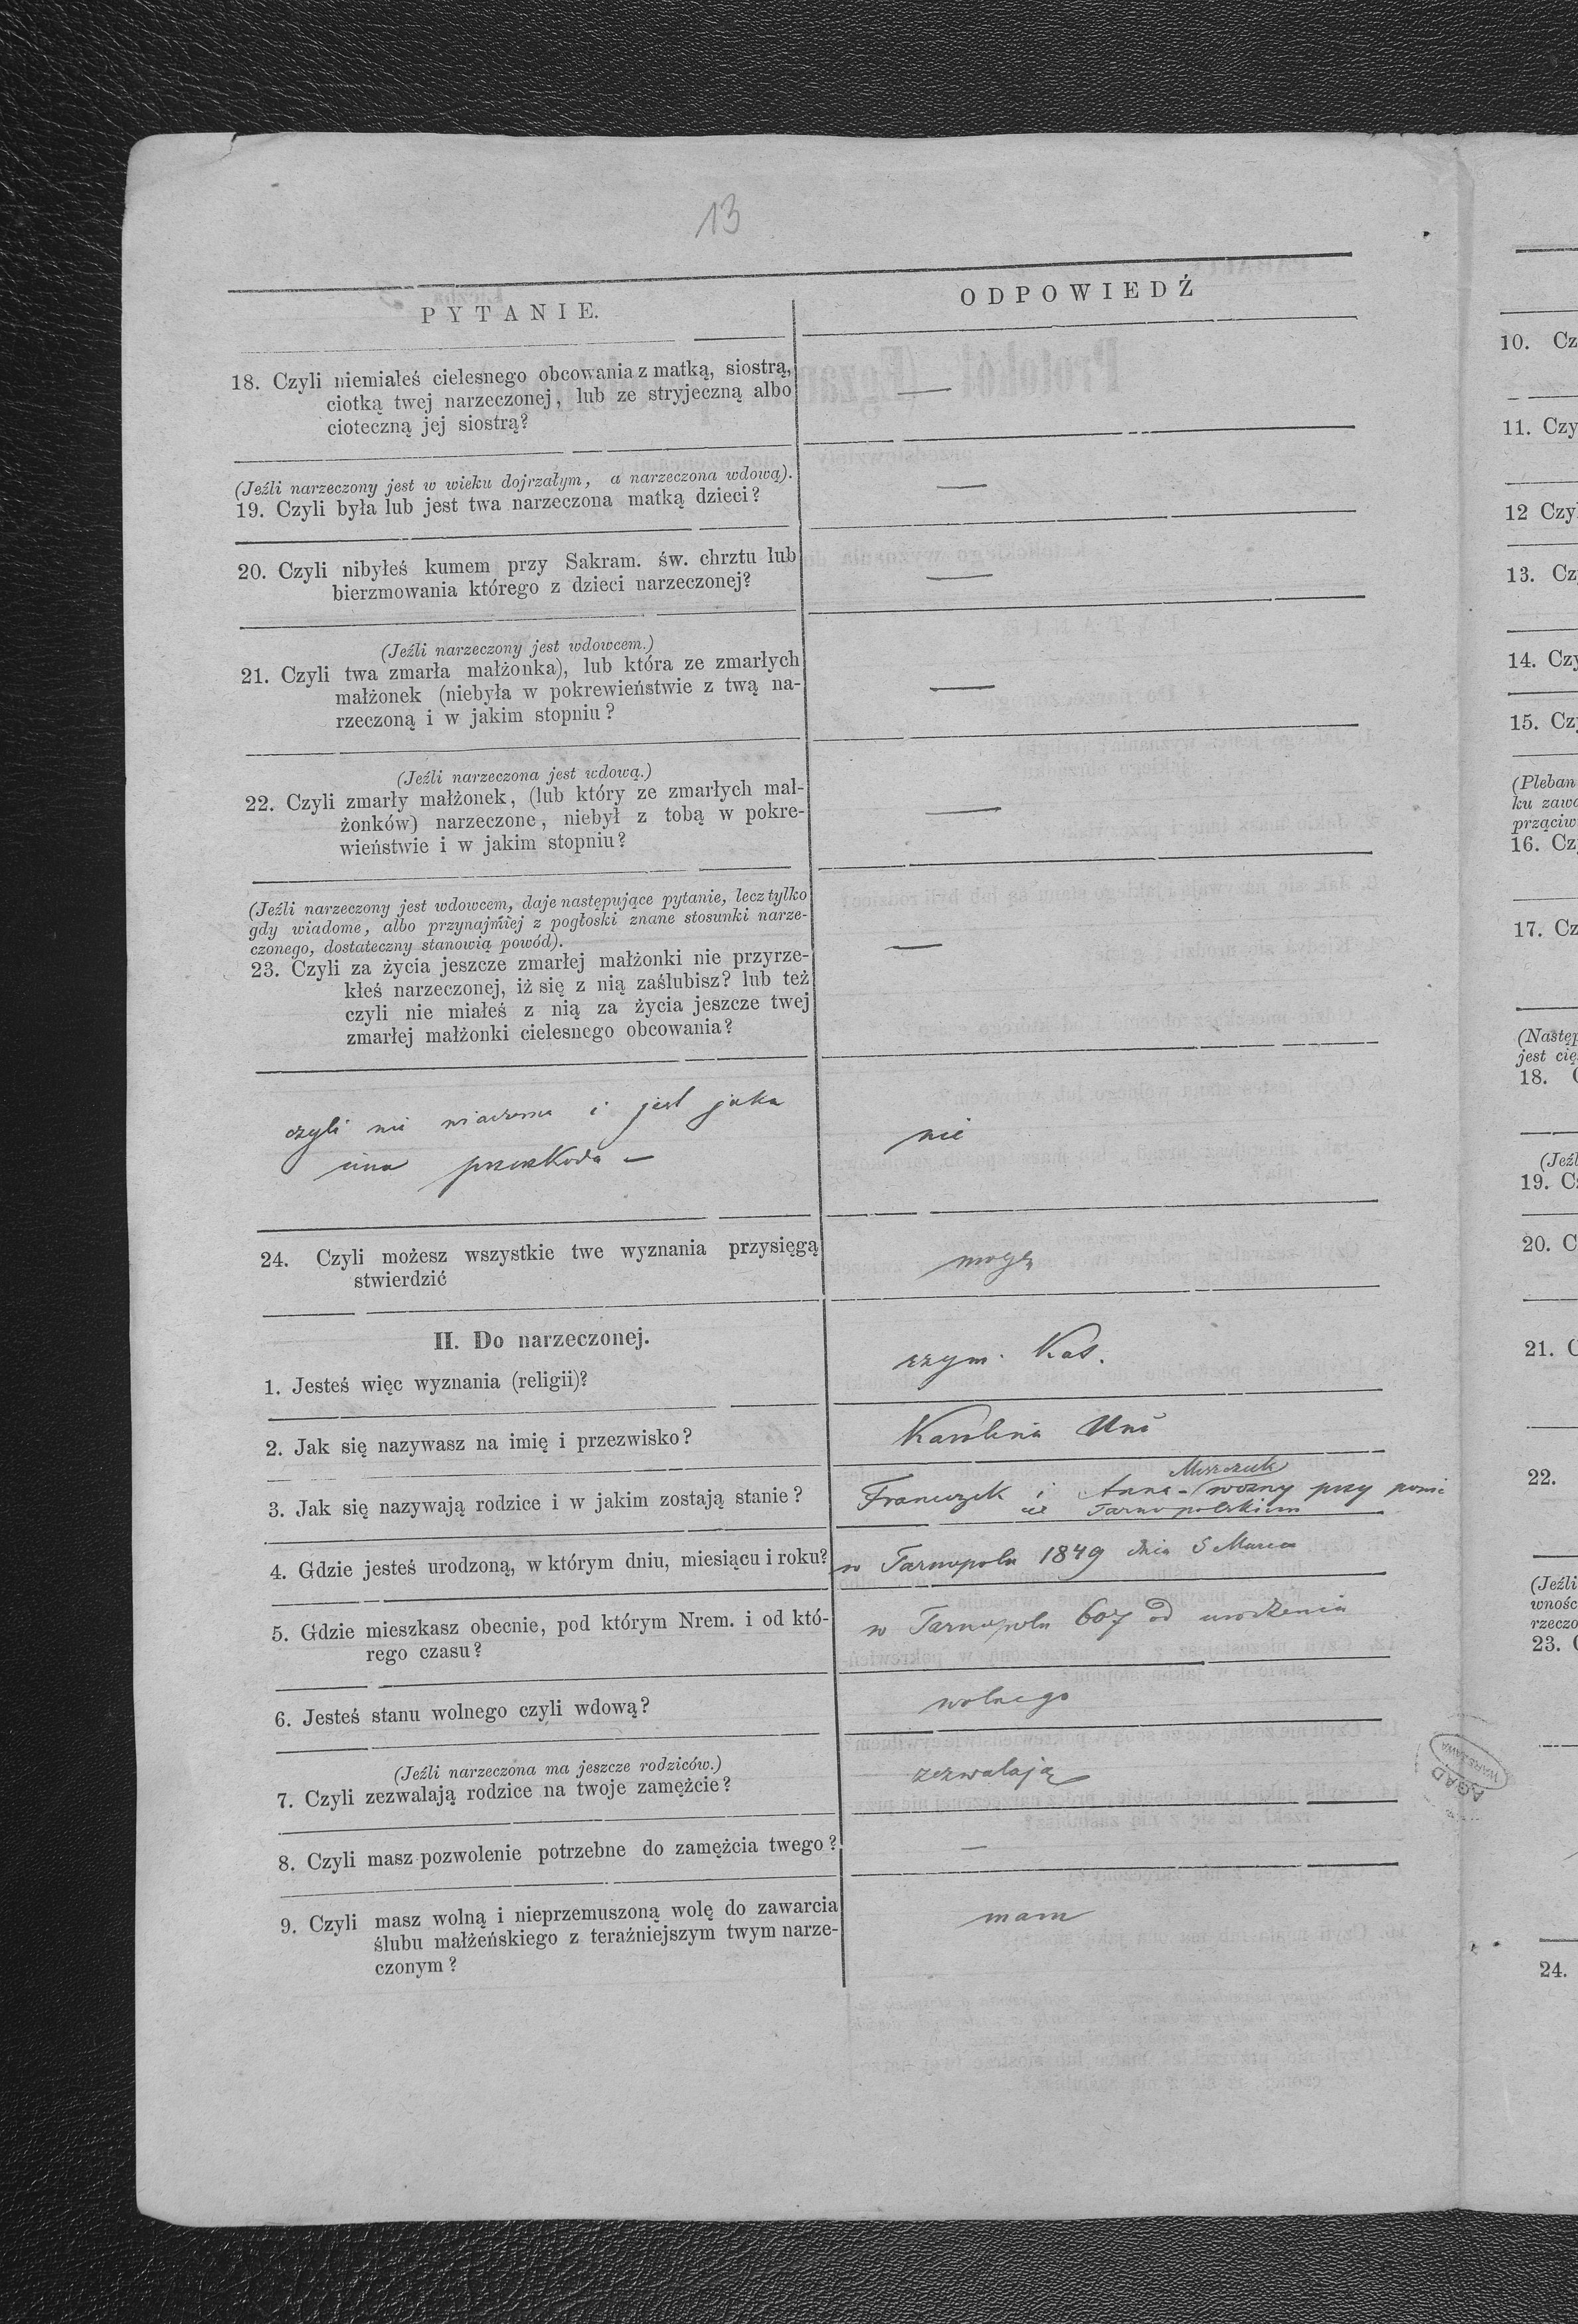 13
PYTANIE.
ODPOWIEDŹ
18. Czyli niemiałeś cielesnego obcowania z matką, siostrą,
ciotką twej narzeczonej, lub ze stryjeczną albo
cioteczną jej siostrą?
—
(Jeźli narzeczony jest w wieku dojrzałym, a narzeczona wdową).
19. Czyli była lub jest twa narzeczona matką dzieci?
—
20. Czyli nibyłeś kumem przy Sakram. św. chrztu lub
bierzmowania którego z dzieci narzeczonej?
—
(Jeźli narzeczony jest wdowcem.)
21. Czyli twa zmarła małżonka), lub która ze zmarłych
małżonek (niebyła w pokrewieństwie z twą na-
rzeczoną i w jakim stopniu?
—
(Jeźli narzeczona jest wdową.)
22. Czyli zmarły małżonek, (lub który ze zmarłych mał-
żonków) narzeczone, niebył z tobą w pokre-
wieństwie i w jakim stopniu?
—
(Jeźli narzeczony jest wdowcem, daje następujące pytanie, lecz tylko
gdy wiadome, albo przynajmiej z pogłoski znane stosunki narze-
czonego, dostateczny stanowią powód).
23. Czyli za życia jeszcze zmarłej małżonki nie przyrze-
kłeś narzeczonej, iż się z nią zaślubisz? lub też
czyli nie miałeś z nią za życia jeszcze twej
zmarłej małżonki cielesnego obcowania?
—
czyli nie wiadoma i jest jaka
inna przeszkoda —
nie
24. Czyli możesz wszystkie twe wyznania przysięgą
stwierdzić
mogę
II. Do narzeczonej.
1. Jesteś więc wyznania (religii)?
rzym. Kat.
2. Jak się nazywasz na imię i przezwisko?
Karolina
3. Jak się nazywają rodzice i w jakim zostają stanie?
Franciszek i Anna - woźny przy
Tarnopolskim
4. Gdzie jesteś urodzoną, w którym dniu, miesiącu i roku?
w Tarnopolu 1849 dnia 5 Marca
5. Gdzie mieszkasz obecnie, pod którym Nrem. i od któ-
rego czasu?
w Tarnopolu 607 od urodzenia
6. Jesteś stanu wolnego czyli wdową?
wolnego
(Jeźli narzeczona ma jeszcze rodziców.)
7. Czyli zezwalają rodzice na twoje zamężcie?
zezwalają
8. Czyli masz pozwolenie potrzebne do zamężcia twego?
—
9. Czyli masz wolną i nieprzemuszoną wolę do zawarcia
ślubu małżeńskiego z teraźniejszym twym narze-
czonym?
mam
AGAD
WARSZAWA
10. Cz
11. Czy
12 Czy
13. Cz
14. Czy
15. Cz
(Pleban
ku zawo
prząciw
16. Cz
17. Cz
(Następ
jest cię
18.
(Jeźl
19. C
20. C
21. C
22.
(Jeźli
wnośc
rzeczo
23. (
24.